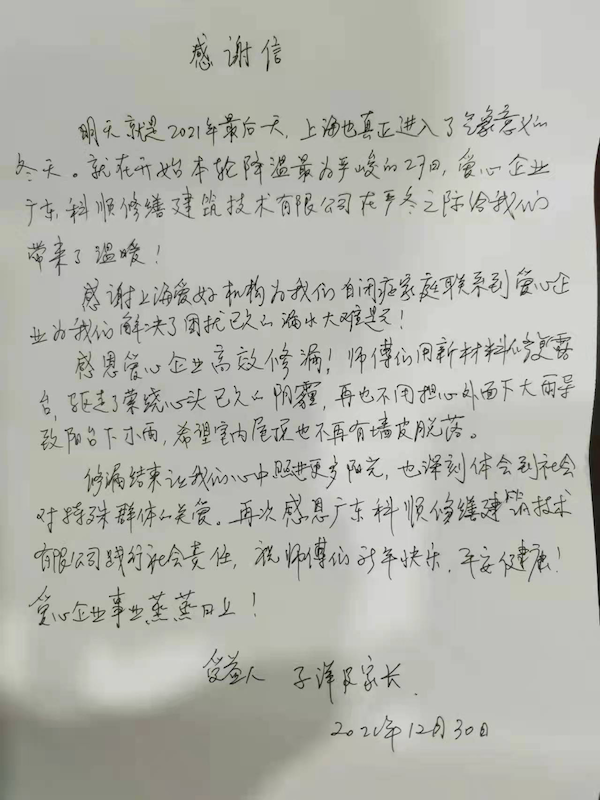 感谢信
明天就是2021年最后一天，上海也真正进入了气象意义的
冬天。就在开始本轮降温最为严峻的27日，爱心企业
广东科顺修缮建筑技术有限公司在严冬之际给我们
带来了温暖！
感谢上海爱好机构为我们自闭症家庭联系到爱心企
业为我们解决了困扰已久的漏水大难题！
感恩爱心企业高效修漏！师傅们用新材料修复露
台，驱走了萦绕心头已久的阴霾，再也不用担心外面下大雨导
致阳台下小雨，希望室内屋顶也不再有墙皮脱落。
修漏结束让我们心中照进更多阳光，也深刻体会到社会
对特殊群体的关爱。再次感恩广东科顺修缮建筑技术
有限公司践行社会责任，祝师傅们新年快乐，平安健康！
爱心企业事业蒸蒸日上！
受益人 子洋及家长
2021年12月30日